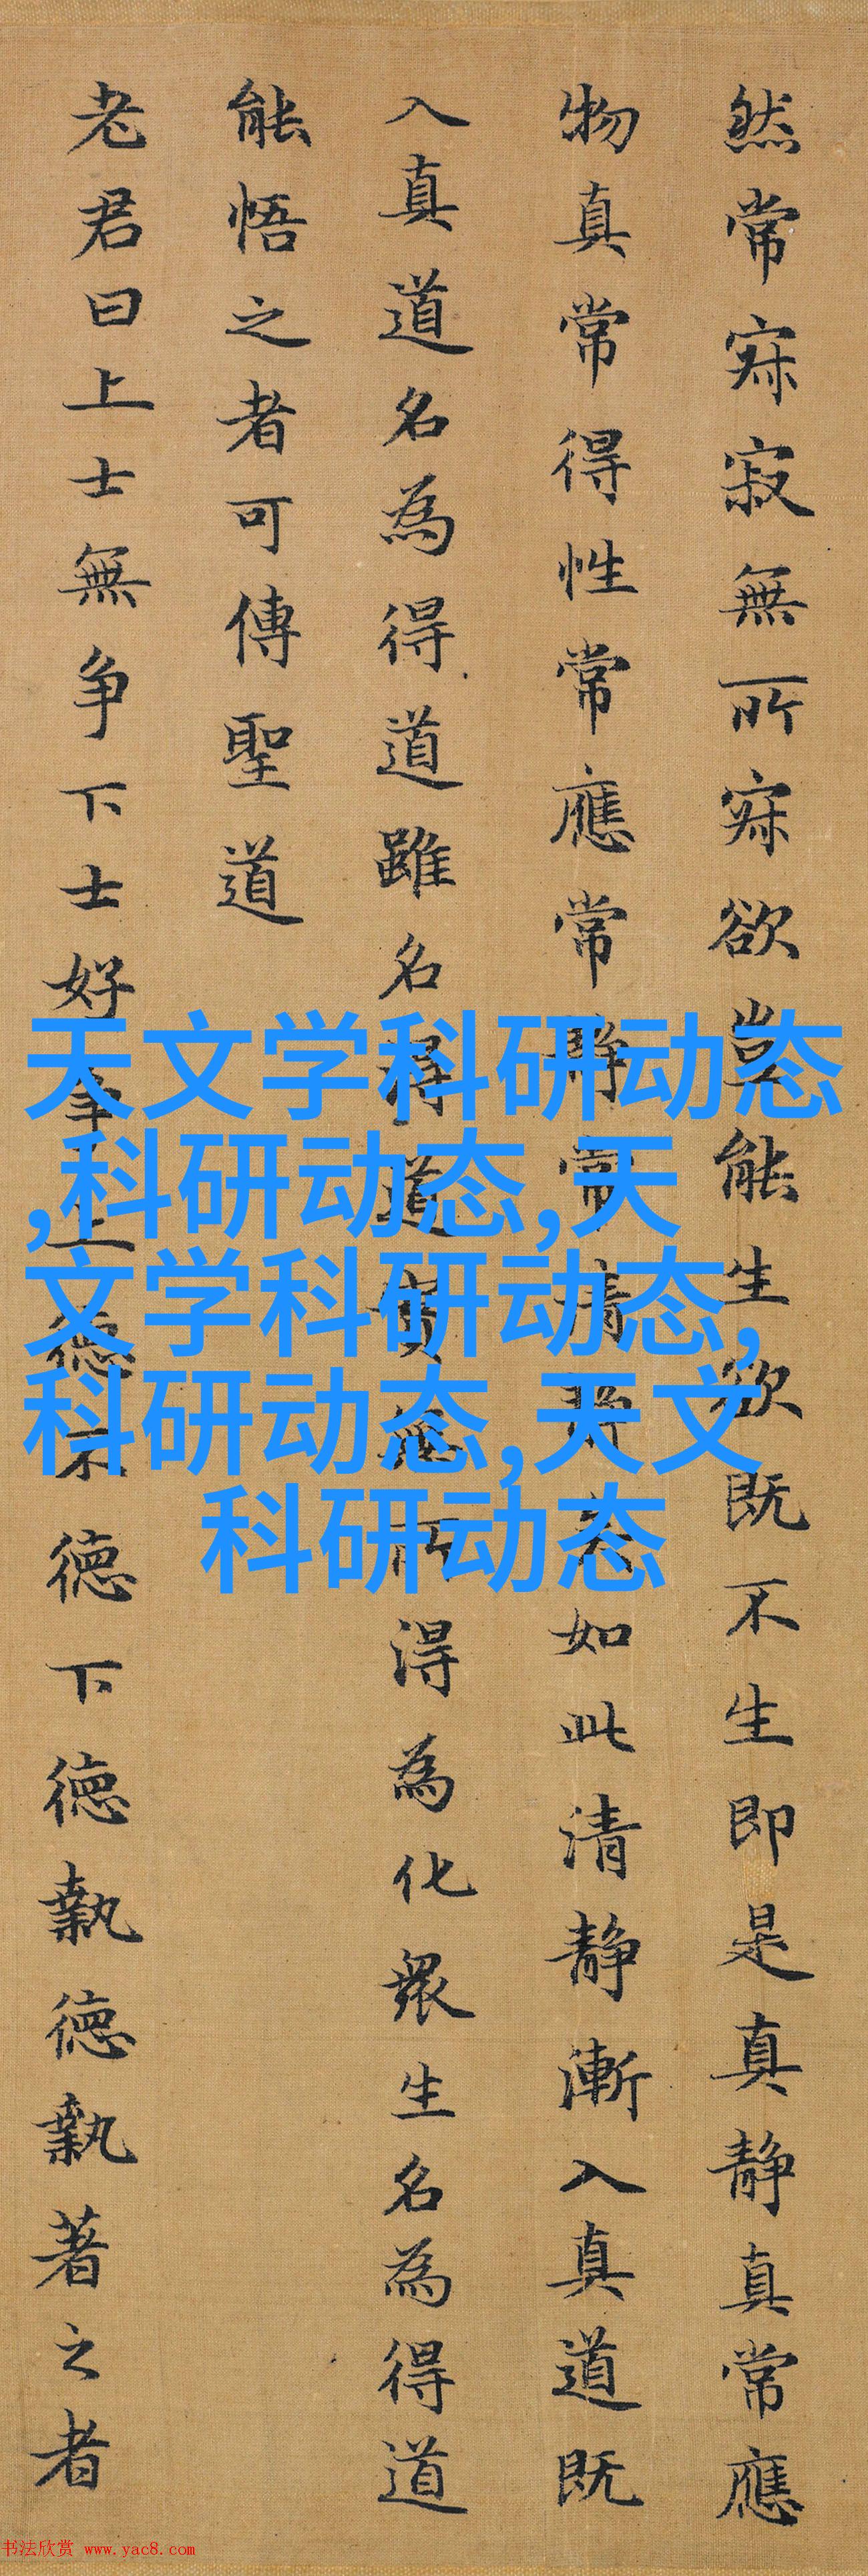 然常寂寂無所寂欲豈能生欲既不生即是真静真常應
物真常得性常應常静常清静矣如此清静漸入真道既
入真道名為得道雖名得道實無所得為化衆生名為得道
能悟之者可傳聖道
老君曰上士無争下士好争上德不德下德執德執著之者
天文学科研动态
,科研动态,天
文学科研动态,
科研动态,天文
科研动态
书法欣赏 www.yac8.com